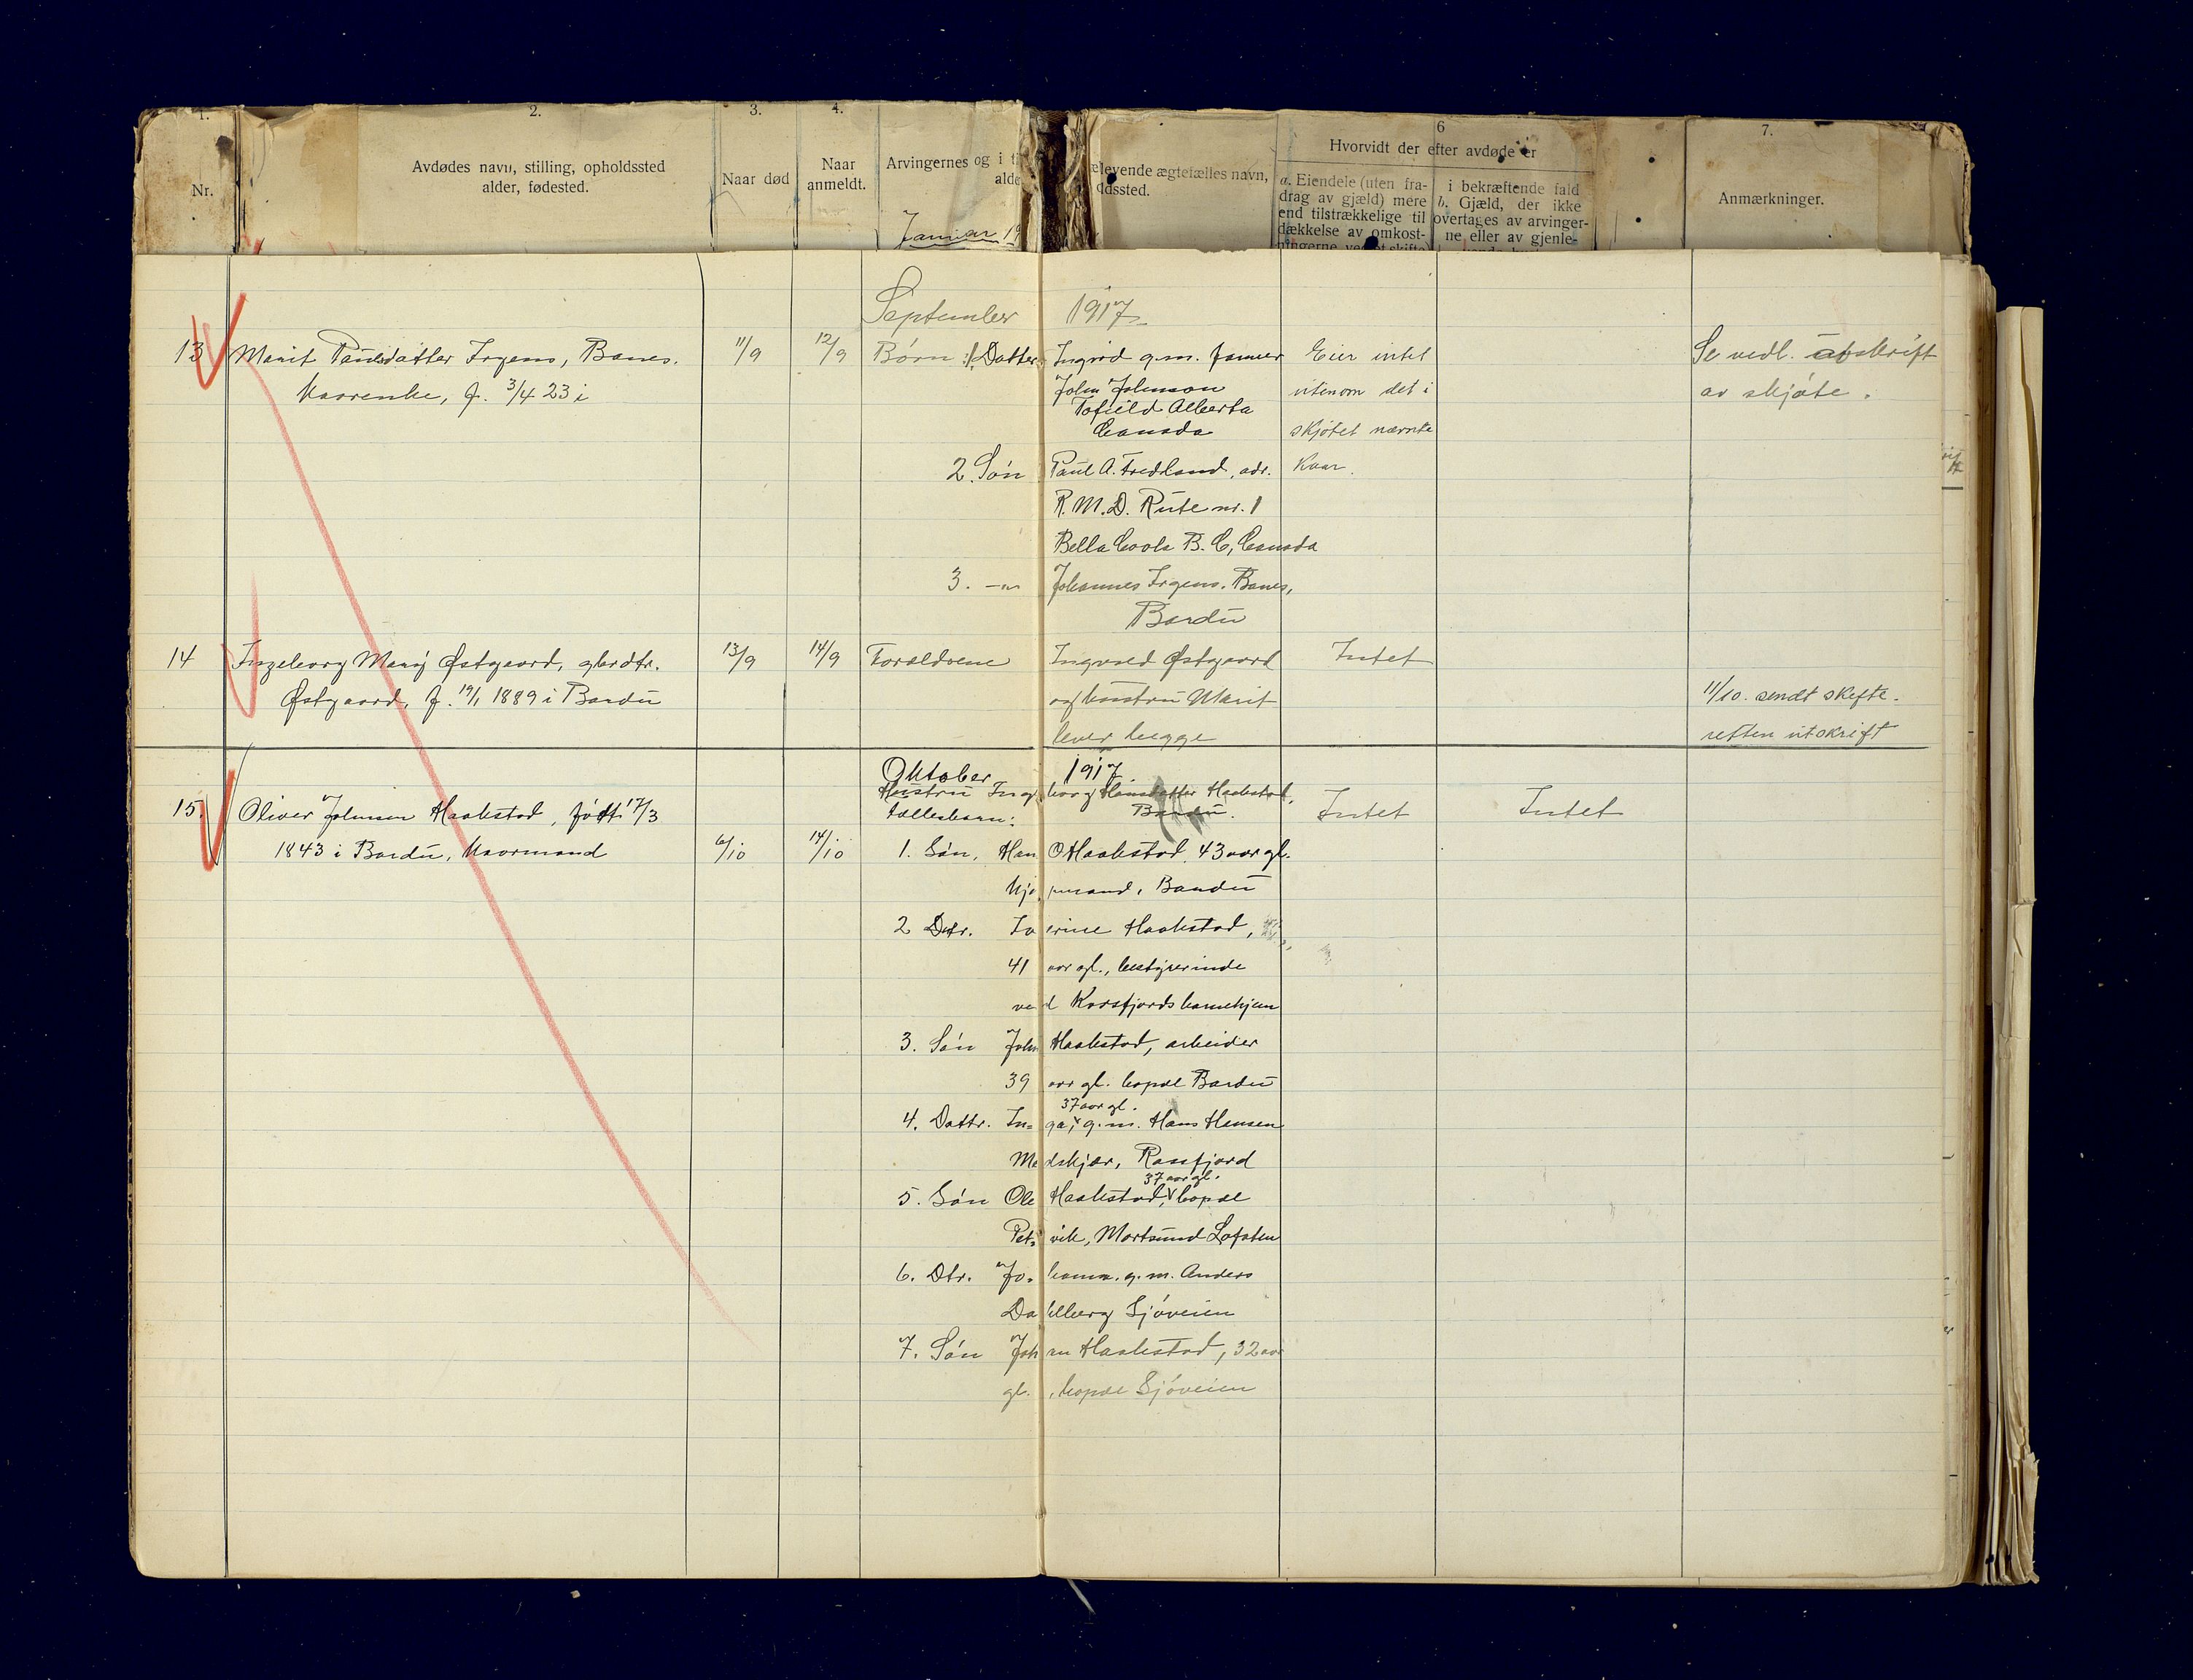 1.
2.
3.
4.
6
7.
Nr.
Avdødes navn, stilling, opholdssted
alder, fødested.
Naar død
Naar
anmeldt.
Arvingernes og i
alde
Januar 19
ælevende ægtefælles navn,
dssted.
Hvorvidt der efter avdøde er
a. Eiendele (uten fra-
drag av gjæld) mere
end tilstrækkelige til
dækkelse av omkost-
ningerne ved et skifte
i bekræftende fald
b. Gjæld, der ikke
overtages av arvinger-
ne eller av gjenle-
Anmærkninger.
September 1917
13 Marit Paulsdatter Irgens, Banes. 11/9 12/9 Børn: 1. Datter Ingrid g.m. farmer Eier intet Se vedl. afskrift
Kaarenke, f. 3/4 23 i John Johnson utenom det i av skjøte.
Tofield Alberta
Canada skjøtet nævnte
2. Søn Paul A. Fredland, adr. kaar.
R. M. D. Rute nr. 1
Bella Coola B. C, Canada
3. -"- Johannes Irgens. Banes,
Bardu
14 Ingeborg Marij Østgaard, gbrdtr. 13/9 14/9 Forældrene Ingvald Østgaard Intet
Østgaard, f. 19/1 1889 i Bardu og hustru Marit 11/10. sendt skifte-
lever begge retten utskrift
Oktober 1917
Hustru Ingeborg Hansdatter Haakstad,
15. Oliver Johnsen Haakstad, født 17/3 fællesbarn: Bardu. Intet Intet
1843 i Bardu, Kaarmand 6/10 14/10 1. Søn, Han O Haakstad, 43 aar gl.
Bardu
2 Dtr. Haakstad,
41 aar gl., bestyrerinde
ved Korsfjords barnehjem
3. Søn John Haakstad, arbeider
39 aar gl. bopæl Bardu
37 aar gl.
4. Dattr. In=ga, g.m. Hans Hansen
Medskjær, Rossfjord
37 aar gl.
5. Søn Ole Haakstad, bopæl
Petvik, Mortsund Lofoten
6. Dtr. Jo=hanna. g.m. Anders
Dahlberg Sjøveien
7. Søn Johan Haakstad, 32 aar
gl., bopæl Sjøveien